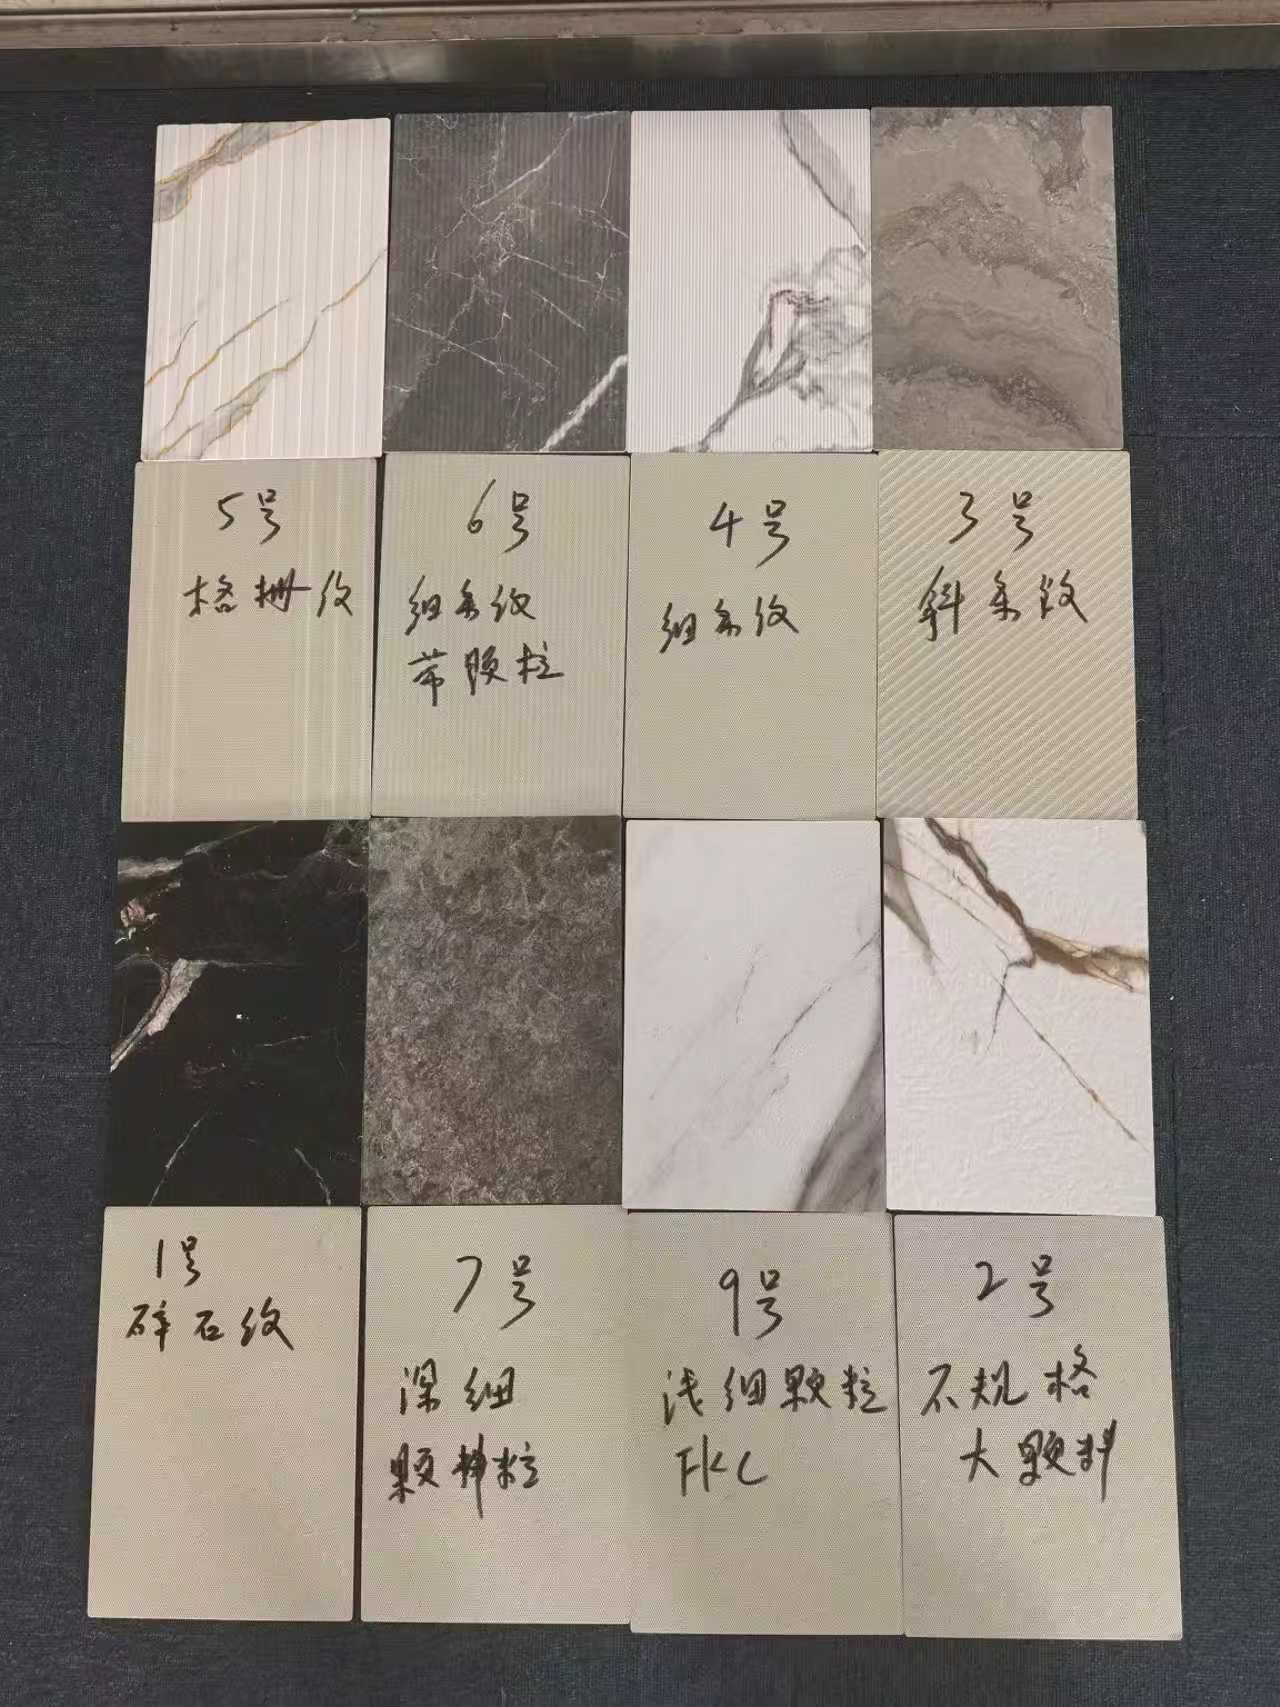 5号
格栅纹
6号
细条纹
带颗粒
4号
细条纹
3号
斜条纹
1号
碎石纹
7号
深细
颗粒
9号
浅细颗粒
FKC
2号
不规格
大颗料